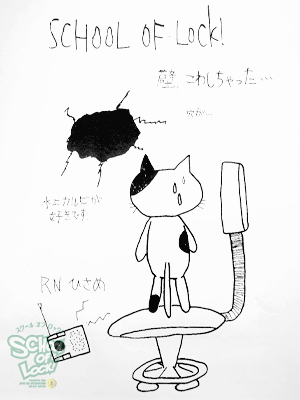 SCHOOL OF LOCK!
壁 こわしちゃった…
穴が…
カルビが
好きです
RN ひさめ
スクールオブロック
SCHOOL
OF
LOCK!